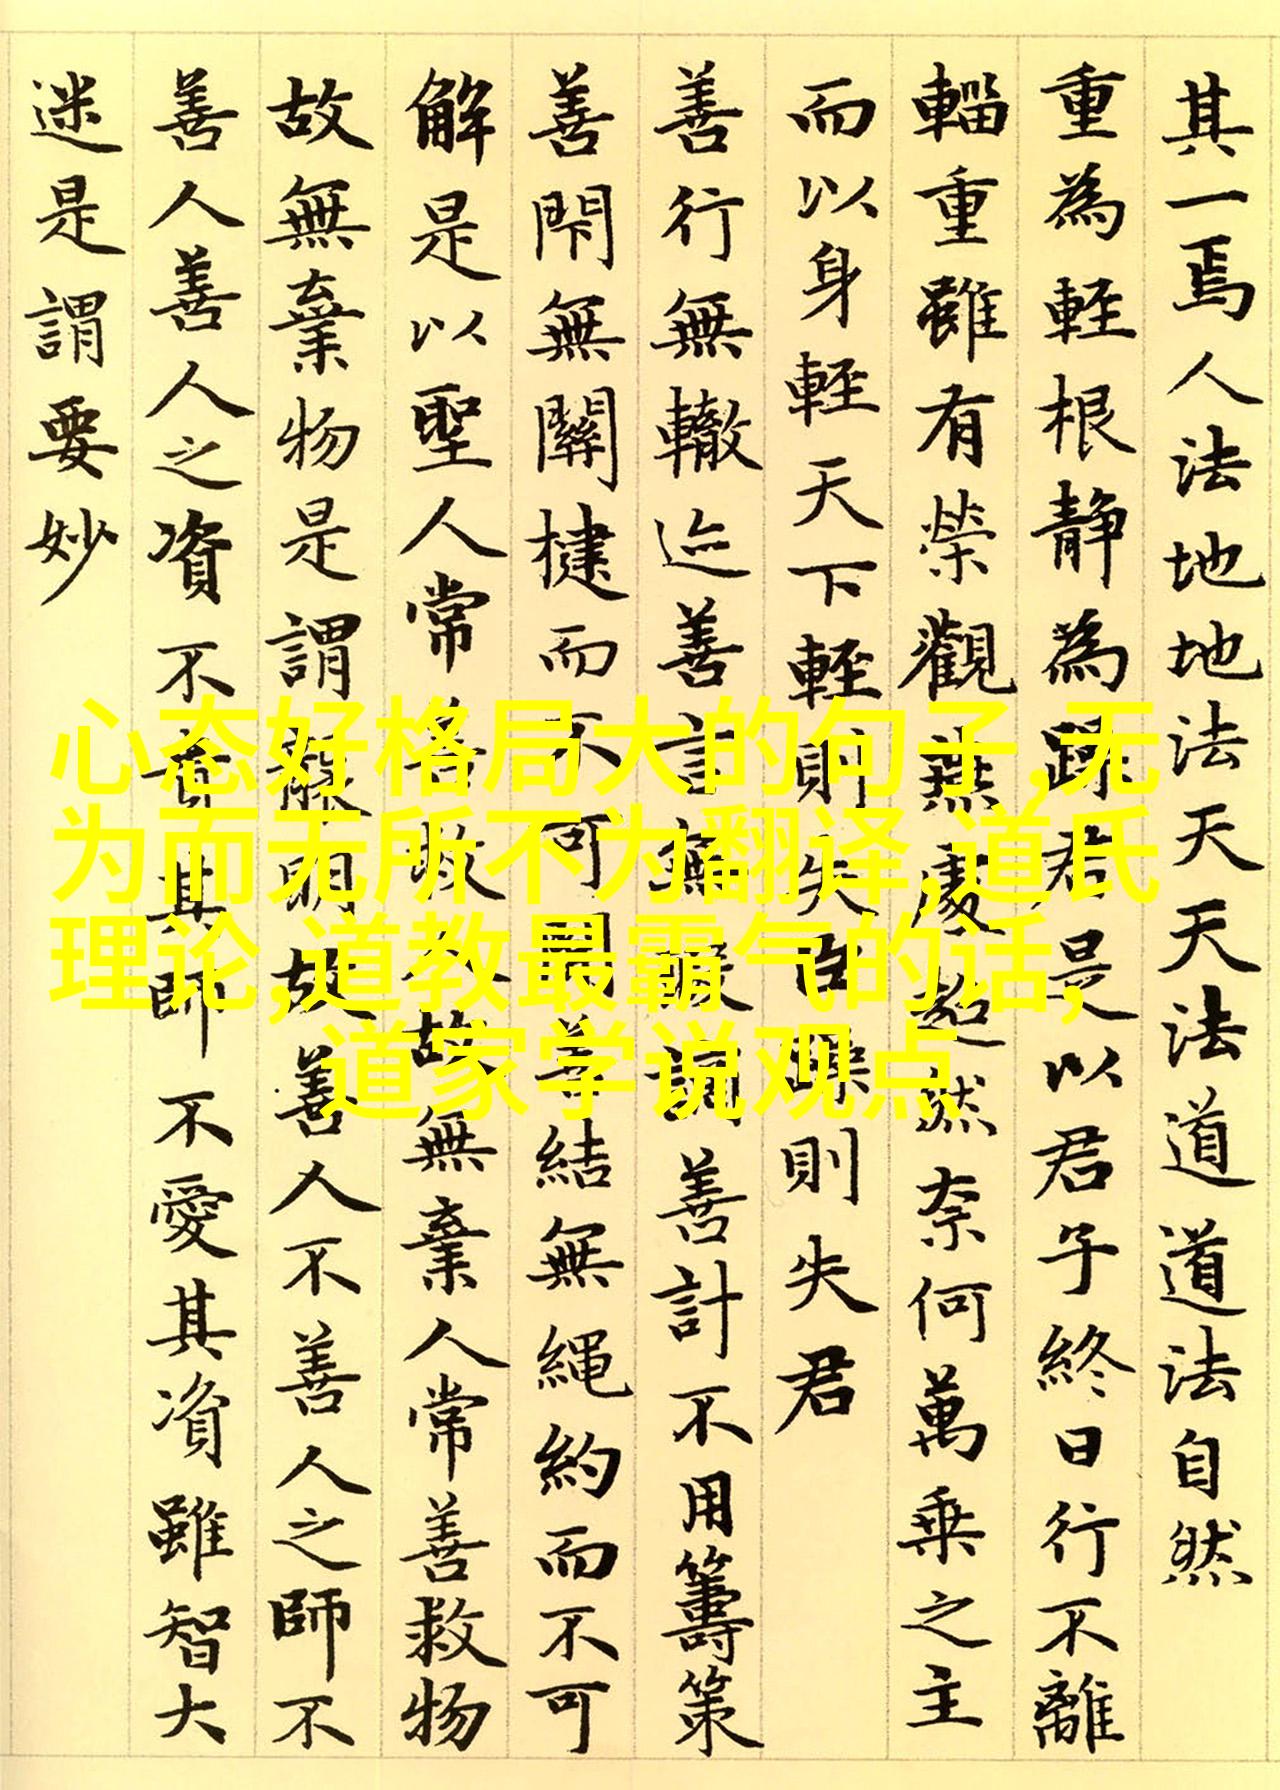 其一焉人法地地法天天法道道法自然
重為輕根靜為躁君是以君子終日行不離
輜重雖有榮觀燕處超然奈何萬乘之主
而以身輕天下輕則失臣躁則失君
善行無轍迹善言無瑕謫善計不用籌策
善閇無關揵而不可開善結無繩約而不可
解是以聖人常善救人故無棄人常善救物
故無棄物是謂襲明故善人不善人之師不
善人善人之資不貴其師不愛其資雖智大
迷是謂要妙
心态好格局大的句子,无
为而无所不为翻译,道氏
理论,道教最霸气的话,
道家学说观点